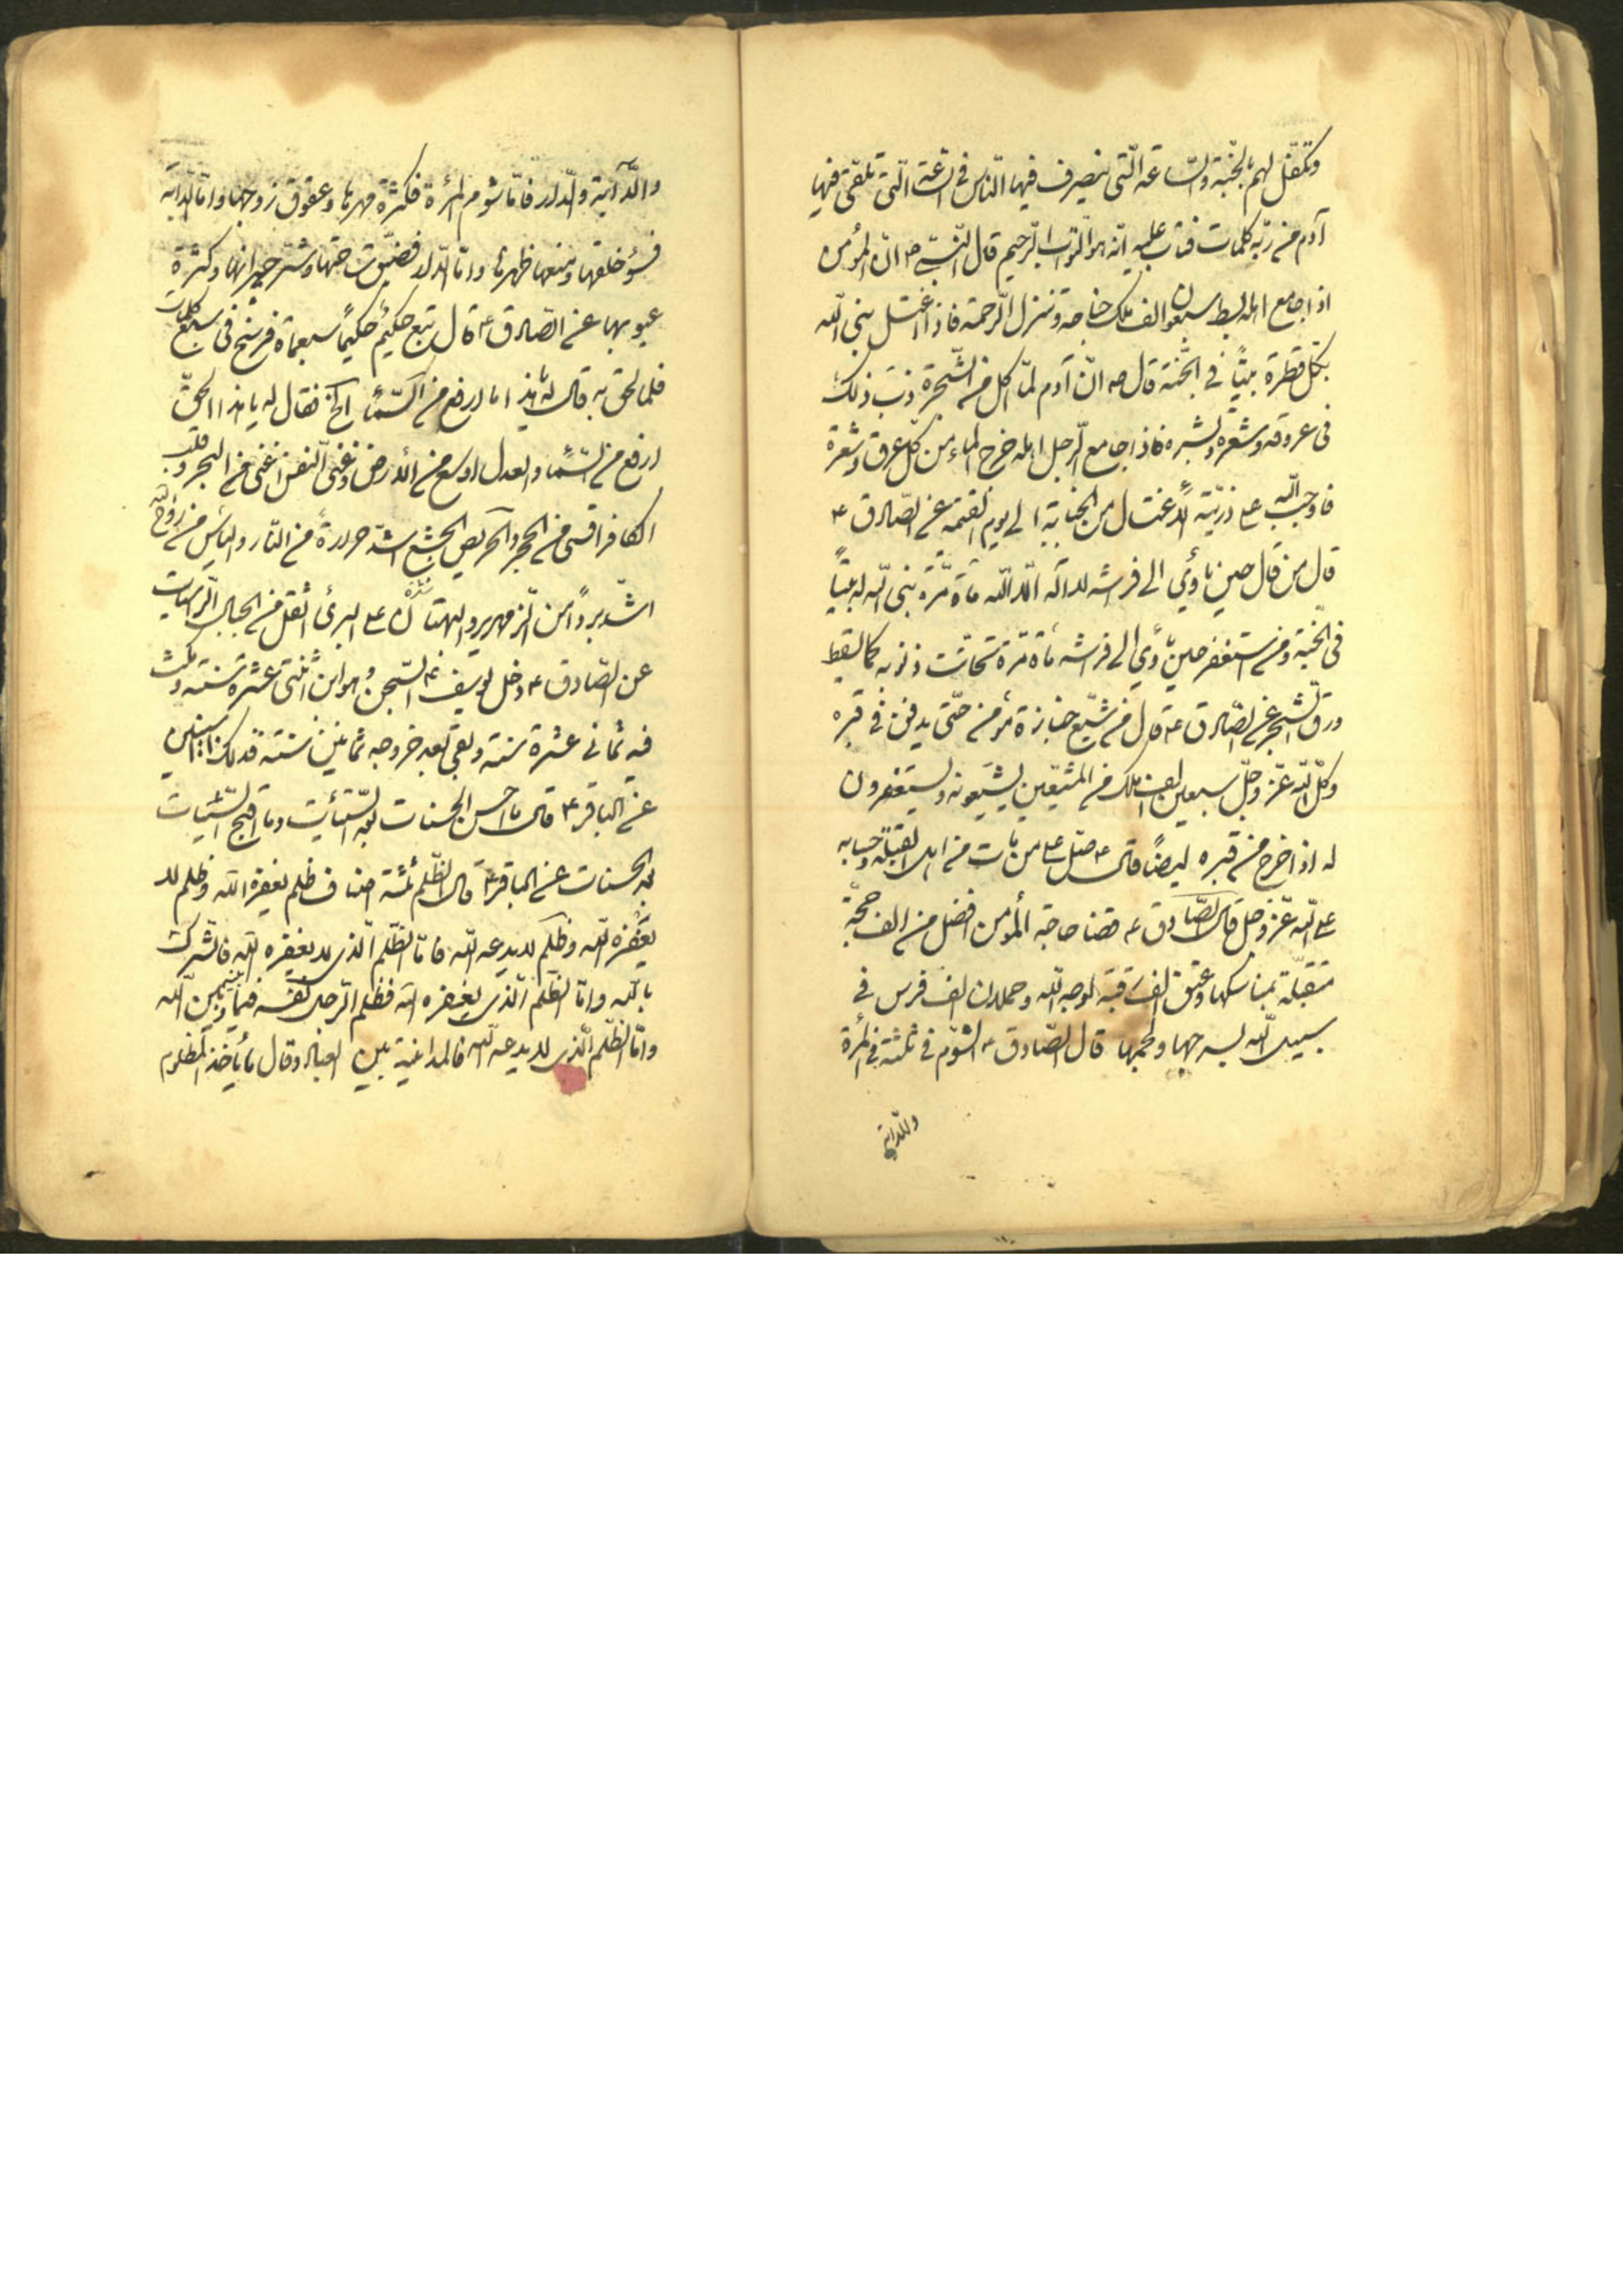 وتكفّل لهم بالجنّة والسّاعة الّتى ينصرف فيها النّاس فى السّاعة الّتى تلقّى فيها
آدم من ربّه كلمات فتاب عليه انّه هو التّواب الرّحيم قال النّبى ص انّ المؤمن
اذا جامع اهله بسط سبعون الف ملك جناحه وتنزل الرّحمة فاذا اغتسل بنى اللّه
بكلّ قطرة بيتًا فى الجنّة قال ص انّ آدم لمّا اكل من الشّجرة دبّ ذلك
فى عروقه وشعره وبشره فاذا جامع الرّجل اهله خرج الماء من كلّ عرق وشعرة
فاوجب اللّه على ذريّته الاغتسال من الجنابة الى يوم القيمة عن الصّادق ع
قال من قال حين ياوى الى فراشه لا اله الّا اللّه مأة مرّة بنى اللّه له بيتًا
فى الجنّة ومن استغفر حين ياوى الى فراشه مأة مرّة تحاتت ذنوبه كما يسقط
ورق الشّجر عن الصّادق ع قال من شيّع جنازة مؤمن حتّى يدفن فى قبره
وكّل اللّه عزّ وجلّ سبعين الف ملك من المشيّعين يشيّعونه ويستغفرون
له اذا خرج من قبره ايضًا قال ع صلّ على من مات من اهل القبلة وحسابه
على اللّه عزّ وجل قال الصّادق ع قضا حاجة المؤمن افضل من الف حجّة
متقبّلة بمناسكها وعتق الف رقبة لوجه اللّه وحملان الف فرس فى
سبيل اللّه بسرجها ولجمها قال الصّادق ع الشّوم فى ثلثة فى المرأة
والدّابّة
والدّابّة والدّار فامّا شوم المرأة فكثرة مهرها وعقوق زوجها وامّا الدّابة
فسؤ خلقها ومنعها ظهرها وامّا الدّار فضيق ساحتها وشرّ جيرانها وكثرة
عيوبها عن الصّادق ع قال تبع حكيم حكيمًا سبعمأة فرسخ فى سبع كلمات
فلما لحق به قال له يا هذا ما ارفع من السّماء الخ فقال له يا هذا الحقّ
ارفع من السّماء والعدل اوسع من الارض وغنى النّفس اغنى من البحر وقلب
الكافر اقسى من الحجر والحريص الجشع اشدّ حرارة من النّار والياس من روح اللّه
اشدّ بردًا من الزّمهرير والبهتان على البرىء اثقل من الجبال الرّاسيات
عن الصّادق ع دخل يوسف ع السّجن وهو ابن اثنتى عشرة سنة ومكث
فيه ثمانى عشرة سنة وبقى بعد خروجه ثمانين سنة فذلك
عن الباقر ع قال ما احسن الحسنات بعد السّيّئات وما اقبح السّيّئات
بعد الحسنات عن الباقر ع قال الظّلم ثلثة اصناف ظلم يغفره اللّه وظلم لا
يغفره اللّه وظلم لا يدعه اللّه فامّا الظّلم الّذى لا يغفره اللّه فالشّرك
باللّه وامّا الظّلم الّذى يغفره اللّه فظلم الرّجل نفسه فيما بينه وبين اللّه
وامّا الظّلم الّذى لا يدعه اللّه فالمداينة بين العباد وقال ما ياخذ المظلوم